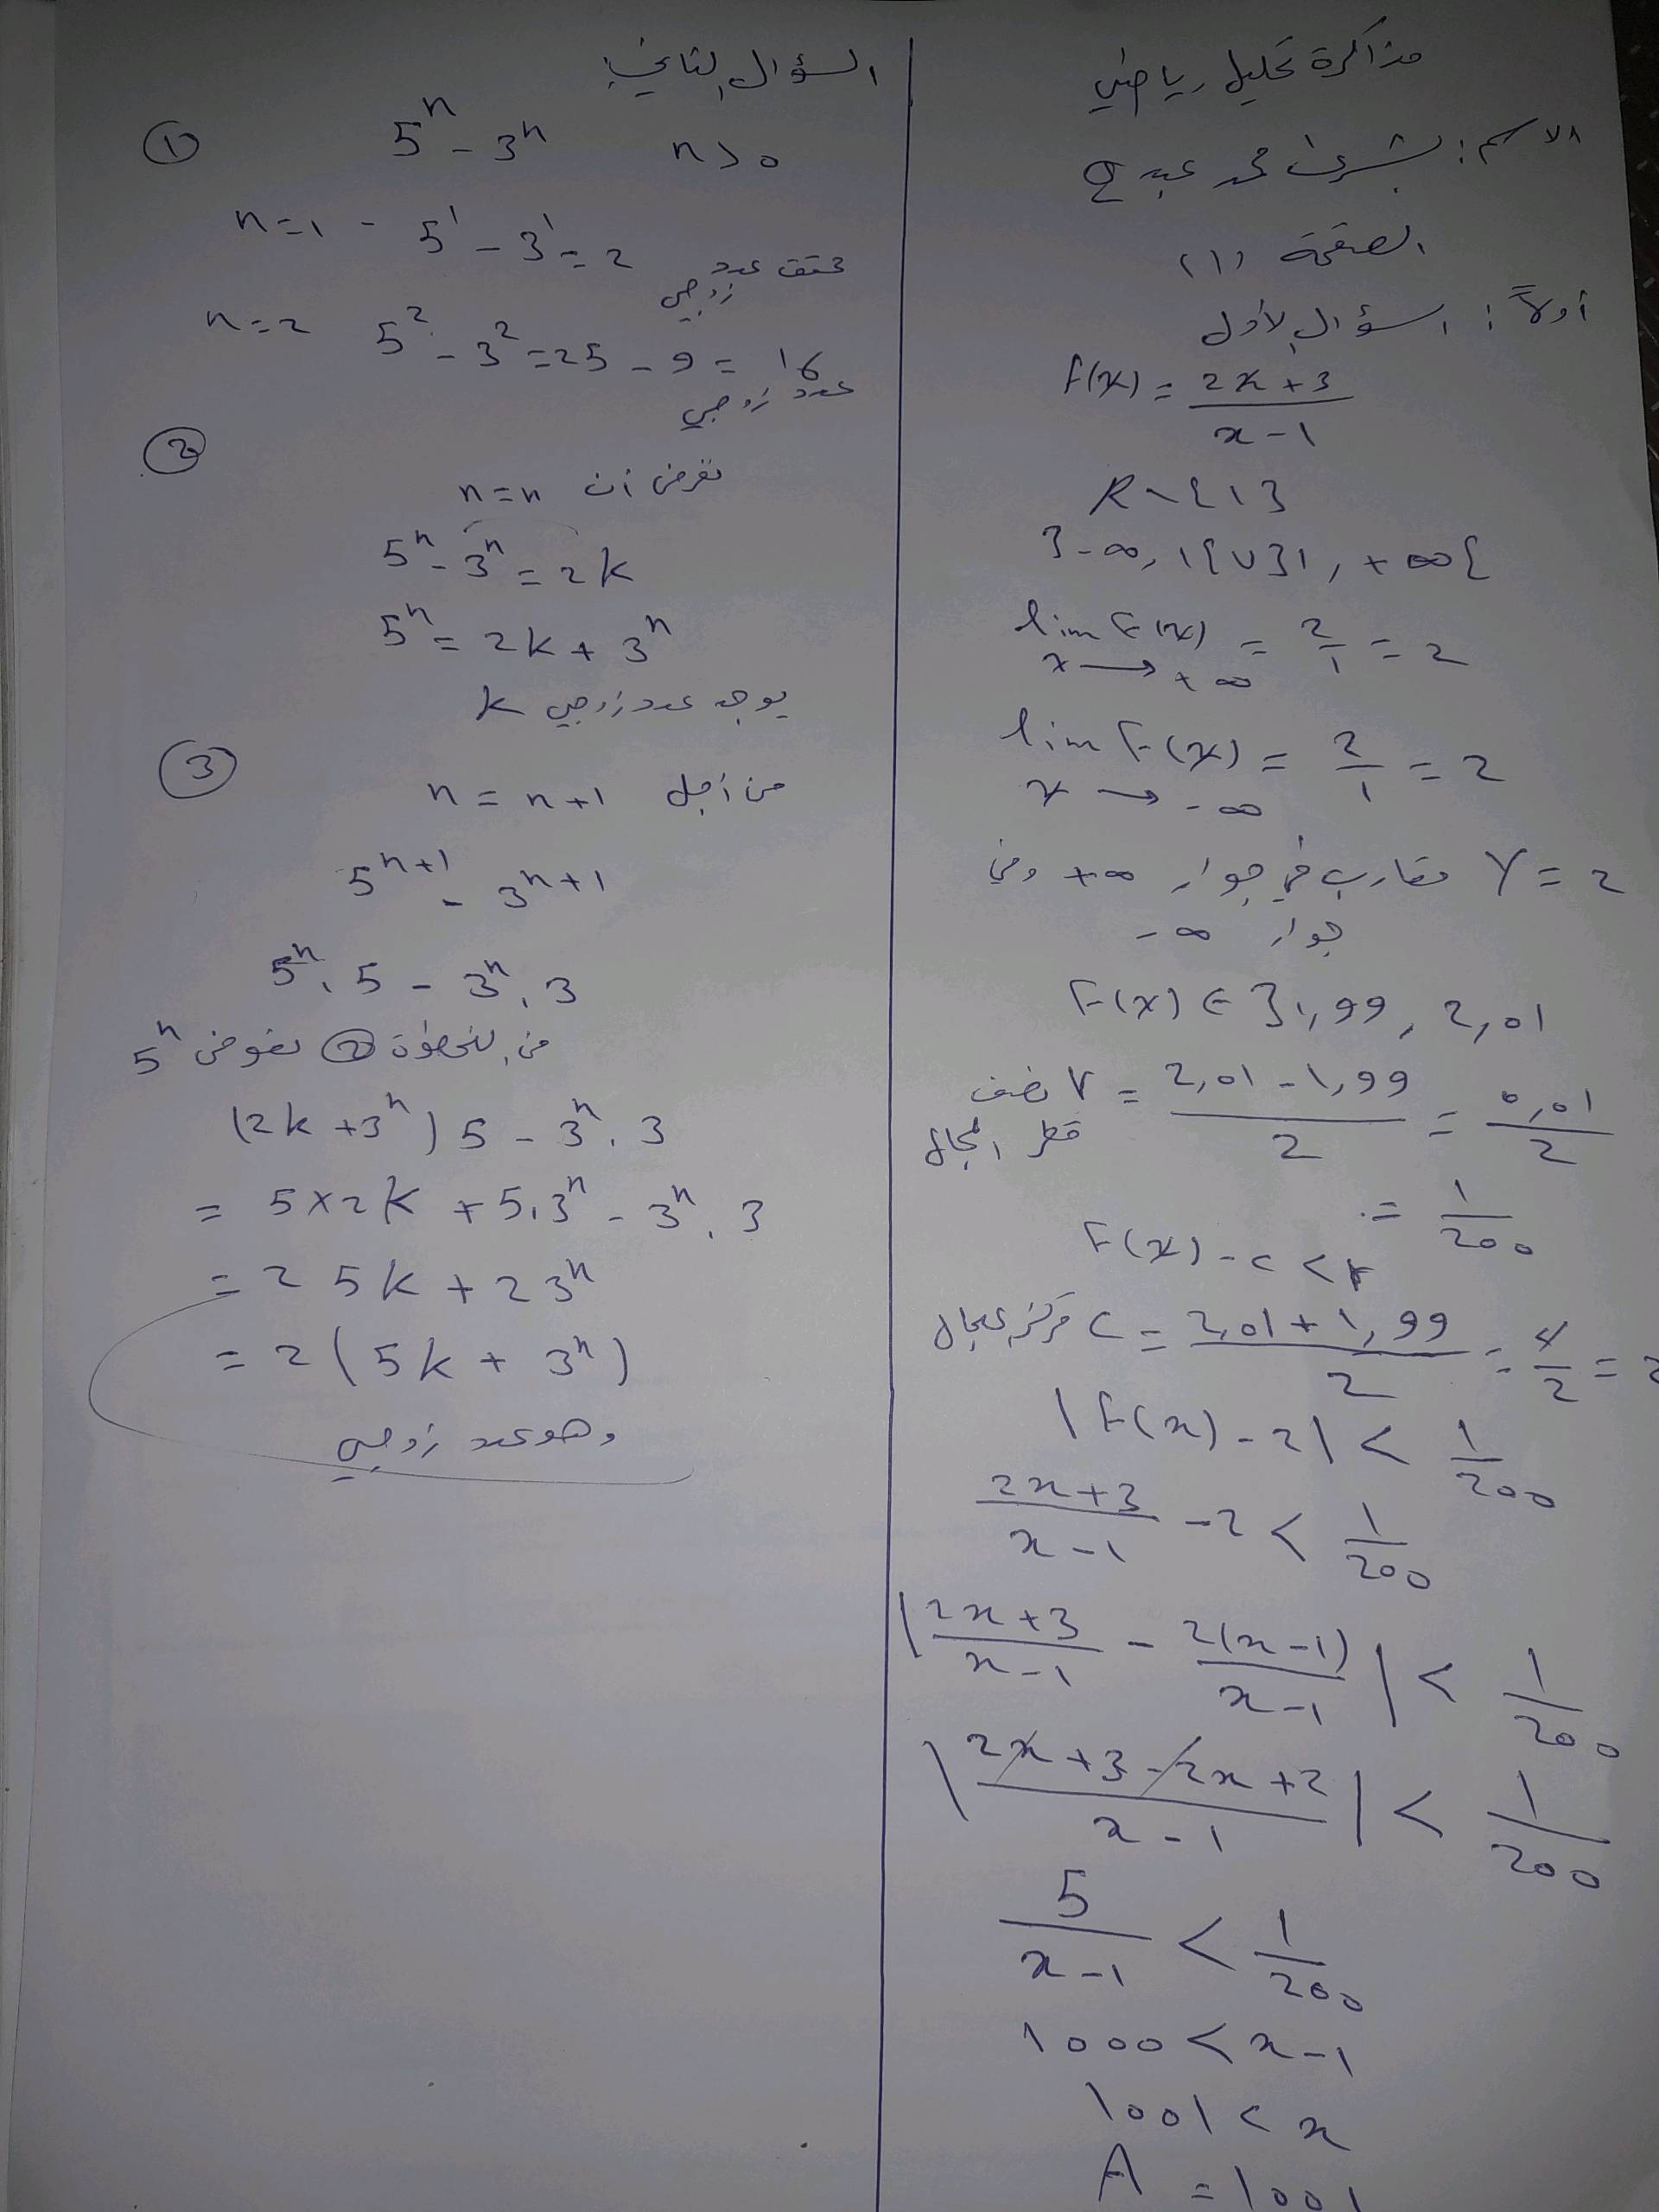 مذاكرة تحليل رياضي
الاسم: بشرى محمد عبد
الصفحة (1)
أولاً: السؤال الأول
F(x) = (2x+3)/(x-1)
R \ {1}
]-∞, 1[ ∪ ]1, +∞[
lim F(x) = 2/1 = 2
x → +∞
lim F(x) = 2/1 = 2
x → -∞
Y = 2 مقارب في جوار +∞ وفي
جوار -∞
F(x) ∈ ]1,99, 2,01
r نصف = (2,01 - 1,99)/2 = 0,01/2
قطر المجال
= 1/200
F(x) - c < r
c مركز مجال = (2,01 + 1,99)/2 = 4/2 = 2
|F(x) - 2| < 1/200
(2x+3)/(x-1) - 2 < 1/200
|(2x+3)/(x-1) - 2(x-1)/(x-1)| < 1/200
|(2x+3-2x+2)/(x-1)| < 1/200
5/(x-1) < 1/200
1000 < x-1
1001 < x
A = 1001
السؤال الثاني:
① 5ⁿ - 3ⁿ n > 0
n=1 - 5¹ - 3¹ = 2 محقق عدد
زوجي
n=2 5² - 3² = 25 - 9 = 16
عدد زوجي
②
نفرض أن n=n
5ⁿ - 3ⁿ = 2k
5ⁿ = 2k + 3ⁿ
يوجد عدد زوجي k
③
من أجل n = n+1
5ⁿ⁺¹ - 3ⁿ⁺¹
5ⁿ . 5 - 3ⁿ . 3
من الخطوة ② نعوض 5ⁿ
(2k + 3ⁿ) 5 - 3ⁿ . 3
= 5×2k + 5.3ⁿ - 3ⁿ . 3
= 2 5k + 2 3ⁿ
= 2 (5k + 3ⁿ)
وهو عدد زوجي